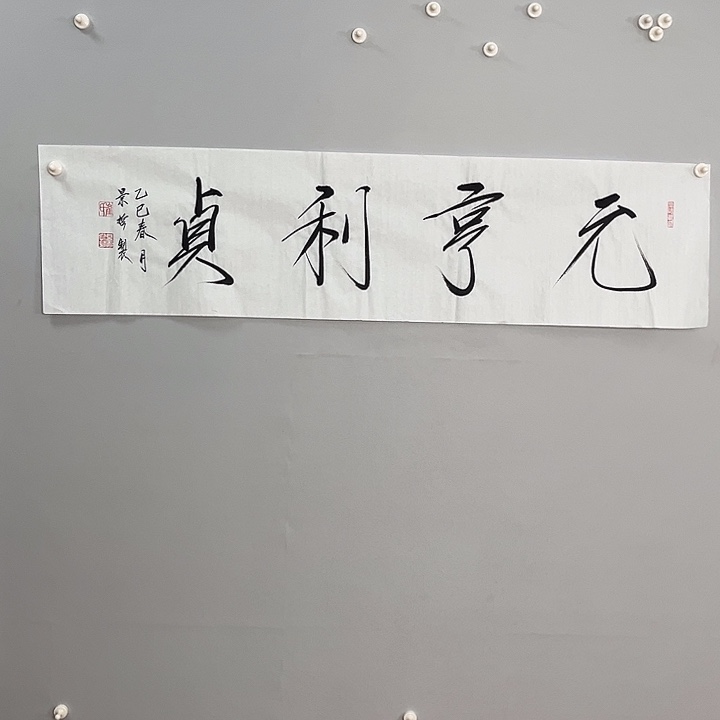 元亨利貞
乙巳春月
景哲製